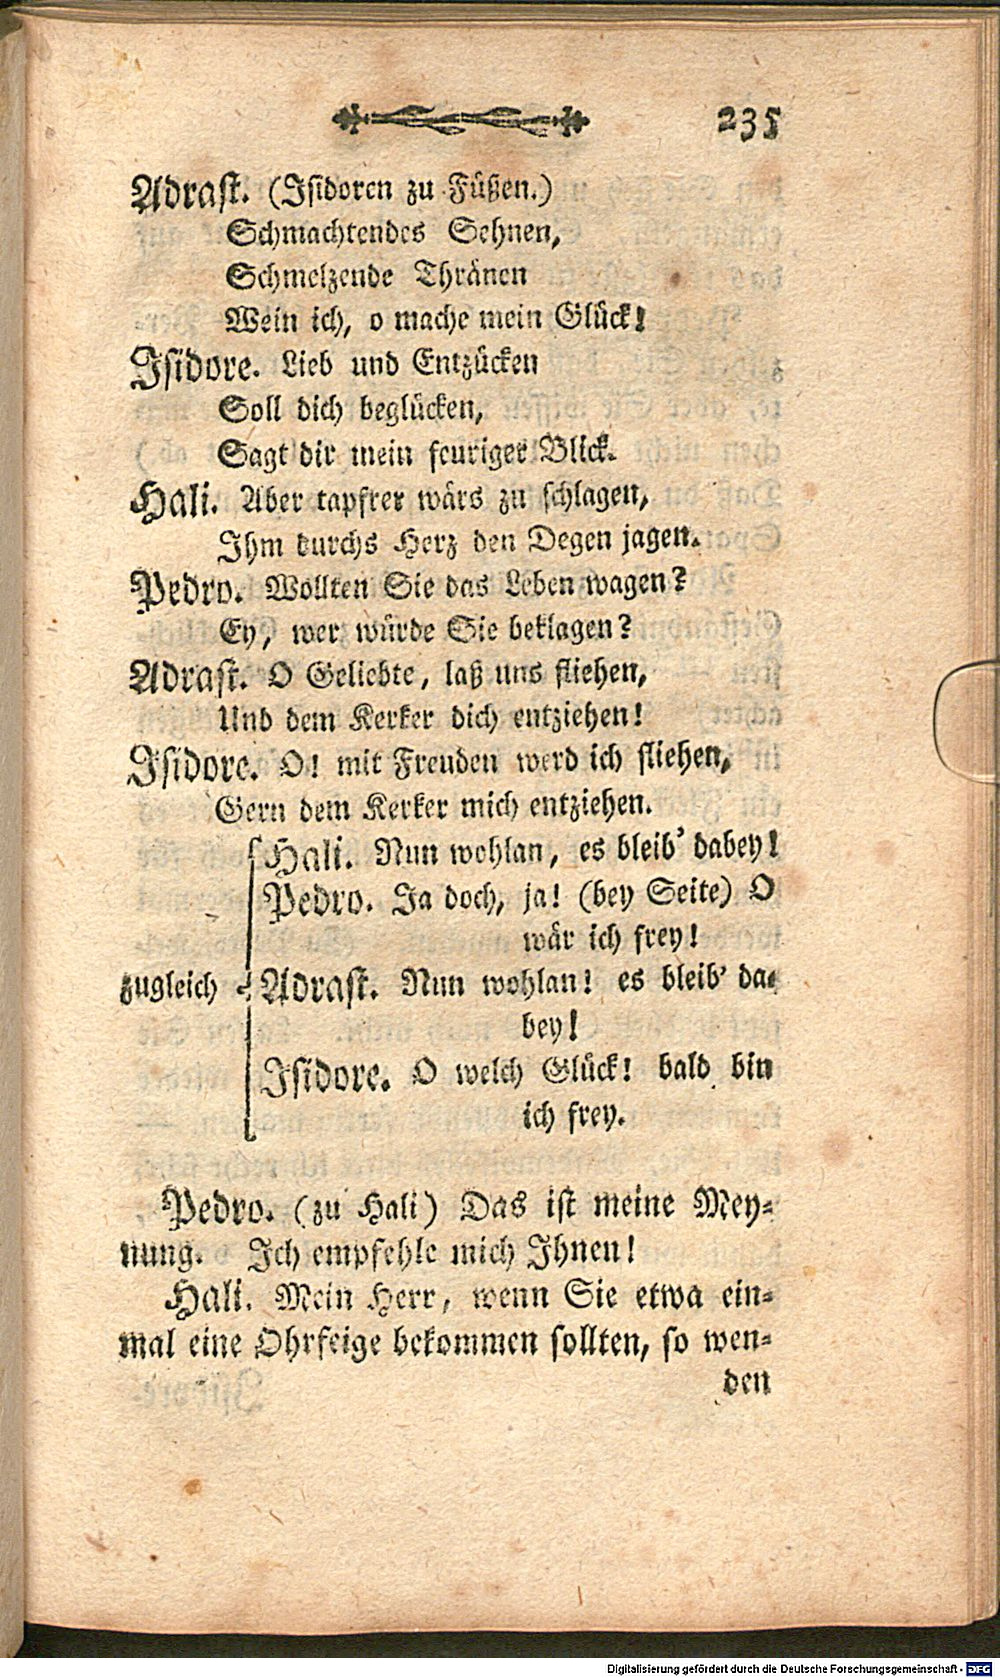 235
Adrast. (Isidoren zu Füßen.)
Schmachtendes Sehnen,
Schmelzende Thränen
Wein ich, o mache mein Glück!
Isidore. Lieb und Entzücken
Soll dich beglücken,
Sagt dir mein feuriger Blick.
Hali. Aber tapfrer wärs zu schlagen,
Ihm durchs Herz den Degen jagen.
Pedro. Wollten Sie das Leben wagen?
Ey, wer würde Sie beklagen?
Adrast. O Geliebte, laß uns fliehen,
Und dem Kerker dich entziehen!
Isidore. O! mit Freuden werd ich fliehen,
Gern dem Kerker mich entziehen.
Hali. Nun wohlan, es bleib' dabey!
Pedro. Ja doch, ja! (bey Seite) O
wär ich frey!
zugleich Adrast. Nun wohlan! es bleib' da-
bey!
Isidore. O welch Glück! bald bin
ich frey.
Pedro. (zu Hali) Das ist meine Mey-
nung. Ich empfehle mich Ihnen!
Hali. Mein Herr, wenn Sie etwa ein-
mal eine Ohrfeige bekommen sollten, so wen-
den
Digitalisierung gefördert durch die Deutsche Forschungsgemeinschaft - DFG